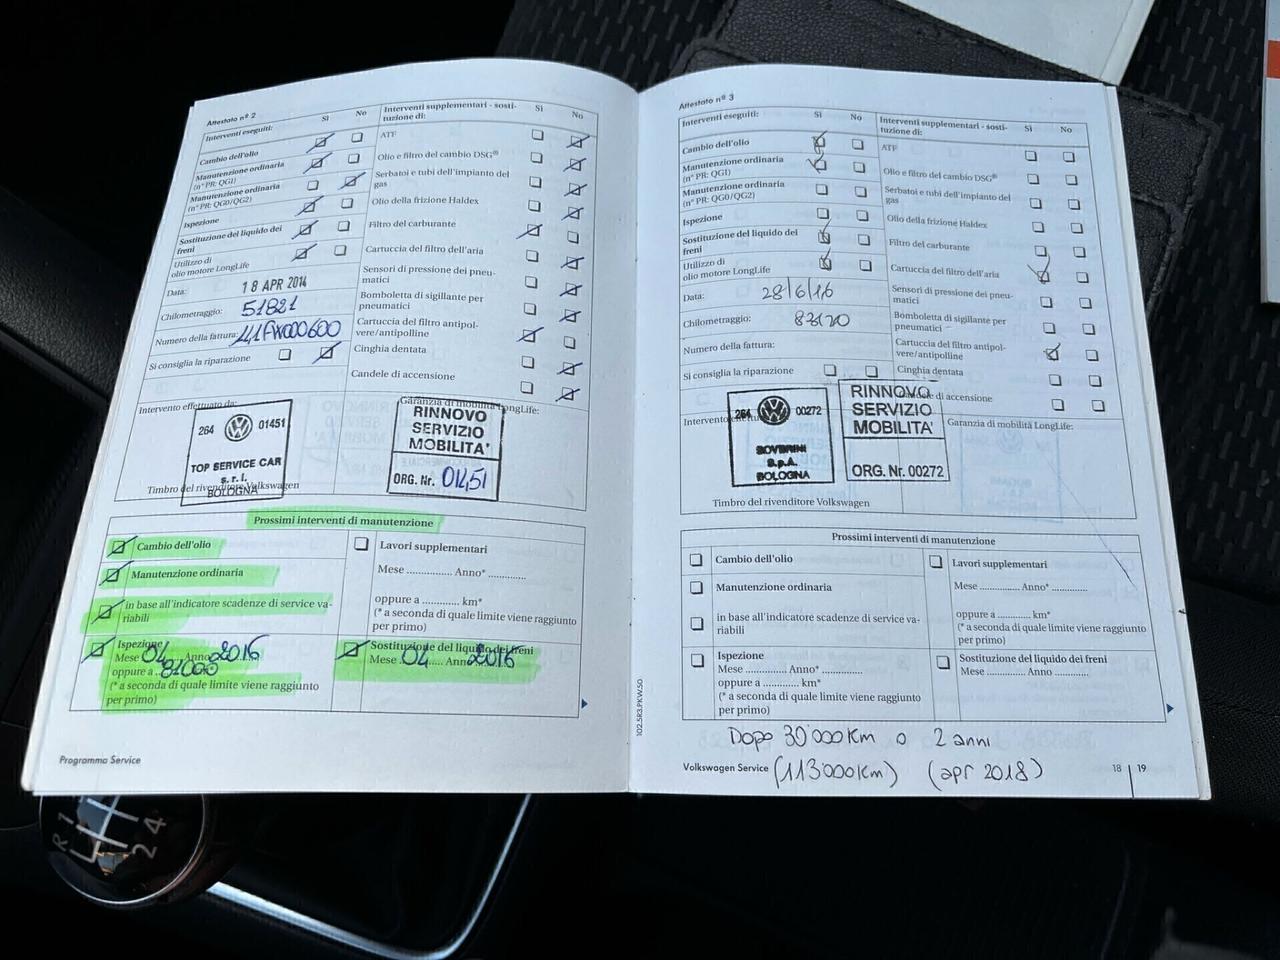 Attestato nº 2
Interventi eseguiti:
Sì
No
Cambio dell'olio
Manutenzione ordinaria
(nº PR: QG1)
Manutenzione ordinaria
(nº PR: QG0/QG2)
Ispezione
Sostituzione del liquido dei
freni
Utilizzo di
olio motore LongLife
Data:
18 APR 2014
Chilometraggio:
51821
Numero della fattura:
Si consiglia la riparazione
Interventi supplementari - sosti-
tuzione di:
Sì
No
ATF
Olio e filtro del cambio DSG®
Serbatoi e tubi dell'impianto del
gas
Olio della frizione Haldex
Filtro del carburante
Cartuccia del filtro dell'aria
Sensori di pressione dei pneu-
matici
Bomboletta di sigillante per
pneumatici
Cartuccia del filtro antipol-
vere/antipolline
Cinghia dentata
Candele di accensione
Intervento effettuato da:
264
01451
TOP SERVICE CAR
s.r.l.
BOLOGNA
Timbro del rivenditore Volkswagen
Garanzia di mobilità LongLife:
RINNOVO
SERVIZIO
MOBILITA'
ORG. Nr. 01451
Prossimi interventi di manutenzione
Cambio dell'olio
Manutenzione ordinaria
in base all'indicatore scadenze di service va-
riabili
Ispezione
Mese 04 Anno 2016
oppure a 81000
(* a seconda di quale limite viene raggiunto
per primo)
Lavori supplementari
Mese ............... Anno* .............
oppure a ............. km*
(* a seconda di quale limite viene raggiunto
per primo)
Sostituzione del liquido dei freni
Mese 04 Anno 2016
Programma Service
102.5R3.PKW.50
Attestato nº 3
Interventi eseguiti:
Sì
No
Cambio dell'olio
Manutenzione ordinaria
(nº PR: QG1)
Manutenzione ordinaria
(nº PR: QG0/QG2)
Ispezione
Sostituzione del liquido dei
freni
Utilizzo di
olio motore LongLife
Data:
28/6/16
Chilometraggio:
Numero della fattura:
Si consiglia la riparazione
Interventi supplementari - sosti-
tuzione di:
Sì
No
ATF
Olio e filtro del cambio DSG®
Serbatoi e tubi dell'impianto del
gas
Olio della frizione Haldex
Filtro del carburante
Cartuccia del filtro dell'aria
Sensori di pressione dei pneu-
matici
Bomboletta di sigillante per
pneumatici
Cartuccia del filtro antipol-
vere/antipolline
Cinghia dentata
di accensione
264
00272
S.p.A.
BOLOGNA
Timbro del rivenditore Volkswagen
RINNOVO
SERVIZIO
MOBILITA'
ORG. Nr. 00272
Garanzia di mobilità LongLife:
Prossimi interventi di manutenzione
Cambio dell'olio
Manutenzione ordinaria
in base all'indicatore scadenze di service va-
riabili
Ispezione
Mese ............... Anno* ...............
oppure a ............... km*
(* a seconda di quale limite viene raggiunto
per primo)
Lavori supplementari
Mese ............... Anno* .............
oppure a ............. km*
(* a seconda di quale limite viene raggiunto
per primo)
Sostituzione del liquido dei freni
Mese ............... Anno ...............
Dopo 30'000 Km o 2 anni
(113'000 Km) (apr 2018)
Volkswagen Service
18 | 19
R 1
2 4